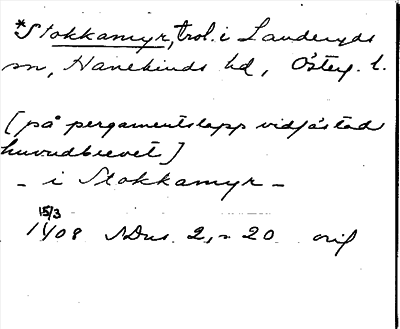 *Stokkamyr, trol. i Landeryds
sn, Hanekinds hd, Österg. l.
[på pergamentslapp vidfästad
huvudbrevet]
- i Stokkamyr -
15/3
1408 SDns. 2, s 20 orig